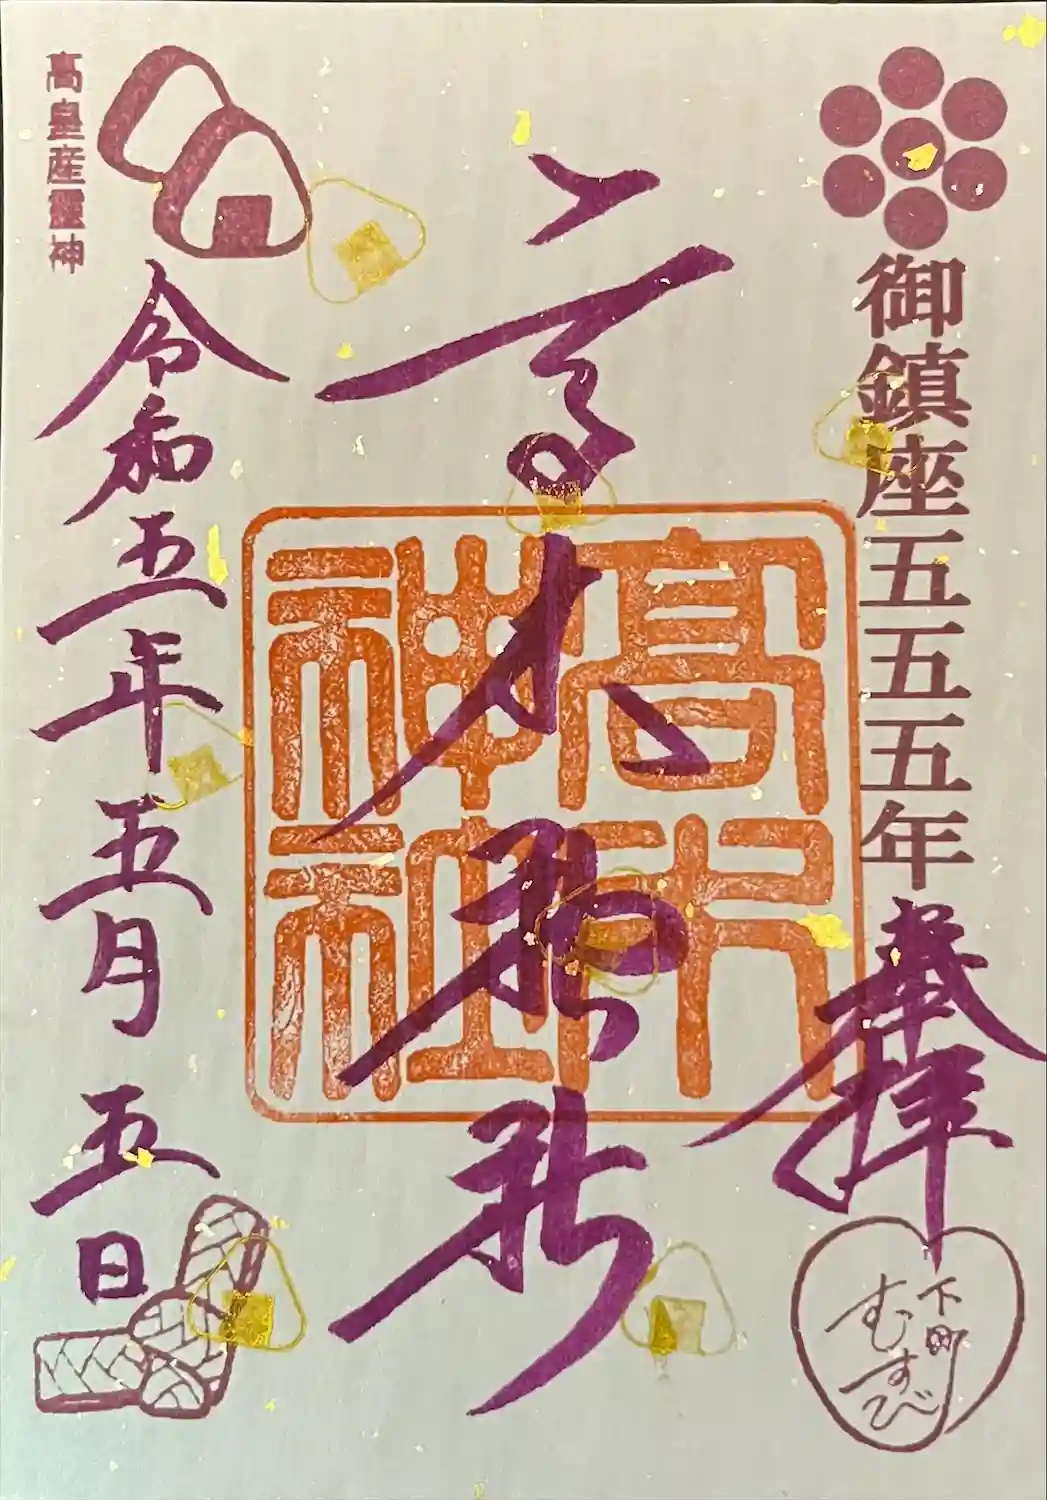 御鎮座五五五年
奉拝
下町
むすび
高木神社
髙木神社
令和五年五月五日
高皇産霊神